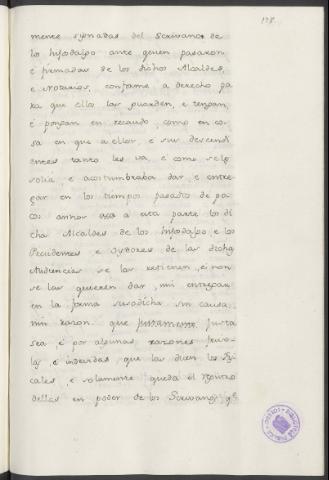 128.
mente sygnadas del Scrivano de
los hijosdalgo ante quien pasaron
é firmadas de los dichos Alcaldes,
e Notarios, conforme a derecho pa
ra que ellos las guarden, e tengan,
é pongan en recaudo, como en co-
sa en que a ellos, e sus descendi
entes tanto les va, e como se les
solia, e acostumbraba dar, e entre-
gar en los tiempos pasados de po
cos annos acá a esta parte los di
chos Alcaldes de los hijosdalgo, e los
Presidentes e Oydores de las dichas
Audiencias se las retienen, e non
se las quieren dar, nin entregar
en la forma susodicha sin causa,
nin razon, que justamente justa
sea é por algunas razones frivo-
las e indevidas, que las dicen los Fis
cales, e solamente queda el registro
dellas en poder de los Scrivanos, que